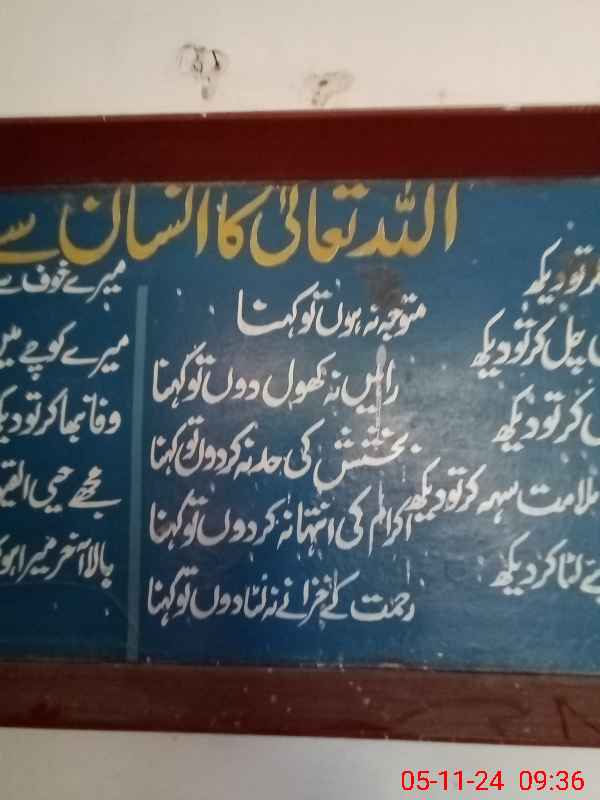 اللہ تعالیٰ کا انسان سے
کر تو دیکھ
متوجہ نہ ہوں تو کہنا
میرے خوف سے
چل کر تو دیکھ
راہیں نہ کھول دوں تو کہنا
میرے کوچے میں
کر تو دیکھ
بخشش کی حد نہ کر دوں تو کہنا
وفا نبھا کر تو دیکھ
ملامت سہہ کر تو دیکھ
اکرام کی انتہا نہ کر دوں تو کہنا
مجھے حیی القیوم
لٹا کر دیکھ
رحمت کے خزانے نہ لٹا دوں تو کہنا
بالآخر میرا ہو
05-11-24 09:36